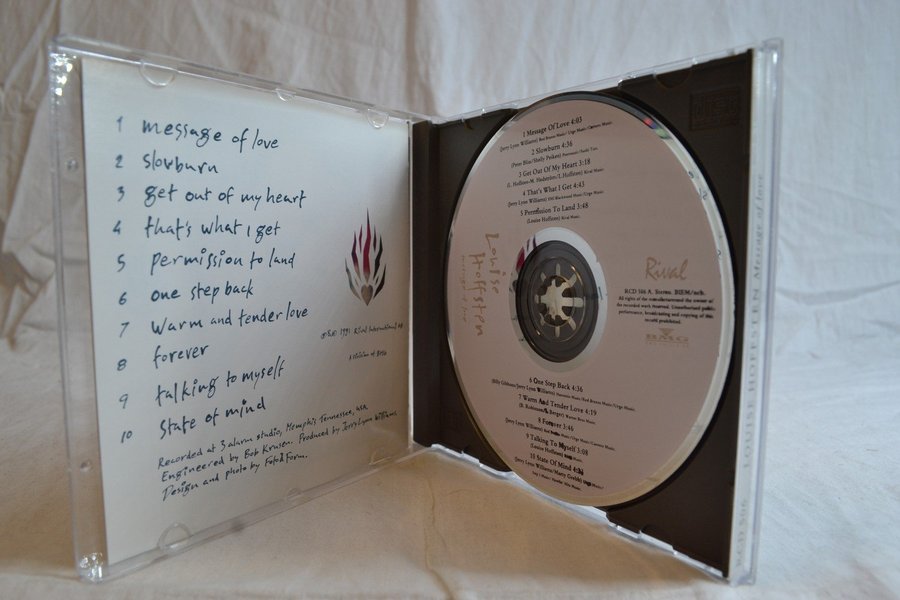 1 message of love
2 slowburn
3 get out of my heart
4 that's what I get
5 permission to land
6 one step back
7 warm and tender love
8 forever
9 talking to myself
10 state of mind
1991 Rival International AB
Recorded at 3 alarm studio, Memphis, Tennessee, USA.
Engineered by Bob Krusen. Produced by Jerry Lynn Williams.
Design and photo by Foto & Form.
1 Message Of Love 4:03
(Jerry Lynn Williams) Red Brazos Music/ Urge Music/ Careers Music
2 Slowburn 4:36
(Peter Bliss/Shelly Peiken)
3 Get Out Of My Heart 3:18
(L. Hoffsten-M. Hedström/I. Hoffsten) Rival Music.
4 That's What I Get 4:43
(Jerry Lynn Williams) Blackwood Music/Urge Music.
5 Permission To Land 3:48
(Louise Hoffsten) Rival Music.
Louise
Hoffsten
message of love
Rival
All rights of the and the owner of
the recorded work reserved. Unauthorised public
performance, broadcasting and copying of this
record prohibited.
BMG
6 One Step Back 4:36
(Billy Gibbons/Jerry Lynn Williams) Music/Red Brazos Music/Urge Music.
7 Warm And Tender Love 4:19
(B. Robinson) Warner Bros Music.
8 Forever 3:46
(Jerry Lynn Williams) Music/Urge Music/ Careers Music
9 Talking To Myself 3:08
(Louise Hoffsten) Music.
10 State Of Mind
(Jerry Lynn Williams/Marty Grebb) Music/
LOUISE HOFFSTEN Message of love